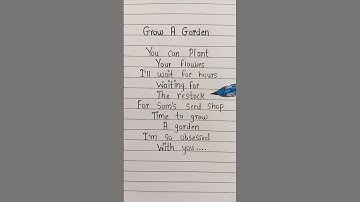 Grow A Garden
You can Plant
Your flowers
I'll wait for hours
Waiting for
The restock
For Sam's seed shop
Time to grow
A garden
I'm so obsessed
With you....